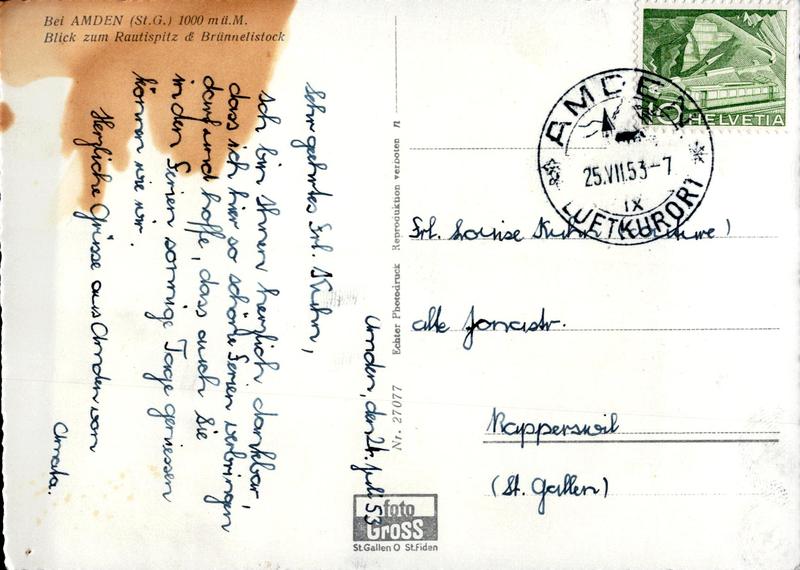 Bei AMDEN (St.G.) 1000 m ü. M.
Blick zum Rautispitz & Brünnelistock
Amden, den 24. Juli 53
Sehr geehrtes Frl. Kuhn,
Ich bin Ihnen herzlich dankbar,
dass ich hier so schöne Ferien verbringen
darf und hoffe, dass auch Sie
in den Ferien sonnige Tage geniessen
können wie wir.
Herzliche Grüsse aus Amden von
Nr. 27077 Echter Photodruck Reproduktion verboten n
foto
Gross
St.Gallen O St.Fiden
HELVETIA
AMDEN
25.VII.53-7
IX
LUFTKURORT
Frl. Louise Kuhn
alte Jonastr.
Rapperswil
(St. Gallen)